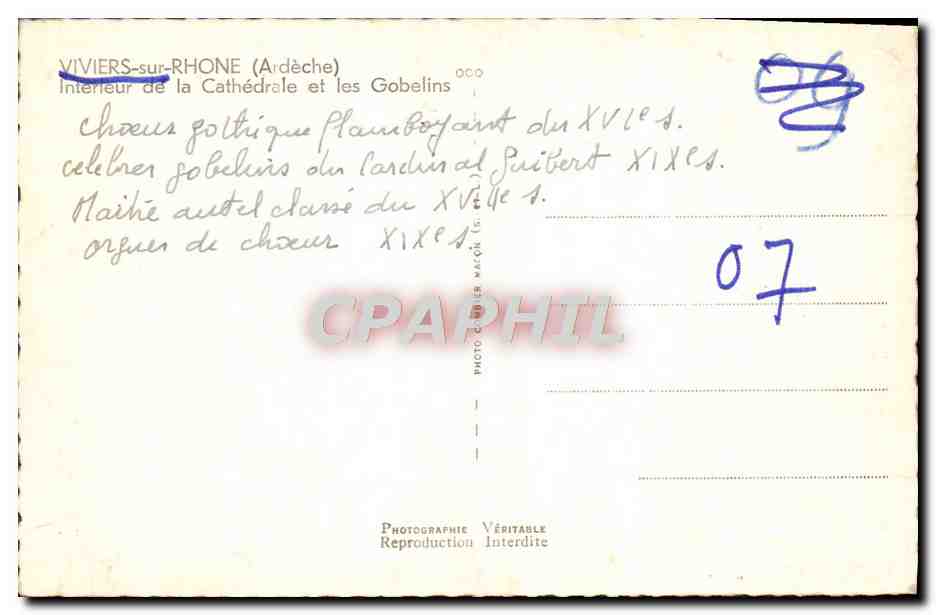 VIVIERS-sur-RHONE (Ardèche)
Intérieur de la Cathédrale et les Gobelins
OCO
09
choeur gothique flamboyant du XVIe s.
celebres gobelins du Cardinal Guibert XIXe s.
Maitre autel classé du XVIIe s.
orgues de choeur XIXe s.
07
CPAPHIL
PHOTO COMBIER MACON (S.-&-L.)
PHOTOGRAPHIE VÉRITABLE
Reproduction Interdite